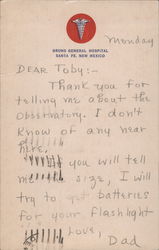 BRUNS GENERAL HOSPITAL
SANTA FE, NEW MEXICO
Monday
DEAR Toby:-
Thank you for
telling me about the
Observatory. I don't
know of any near
here.
If you will tell
me the size, I will
try to get batteries
for your flashlight
Love,
Dad